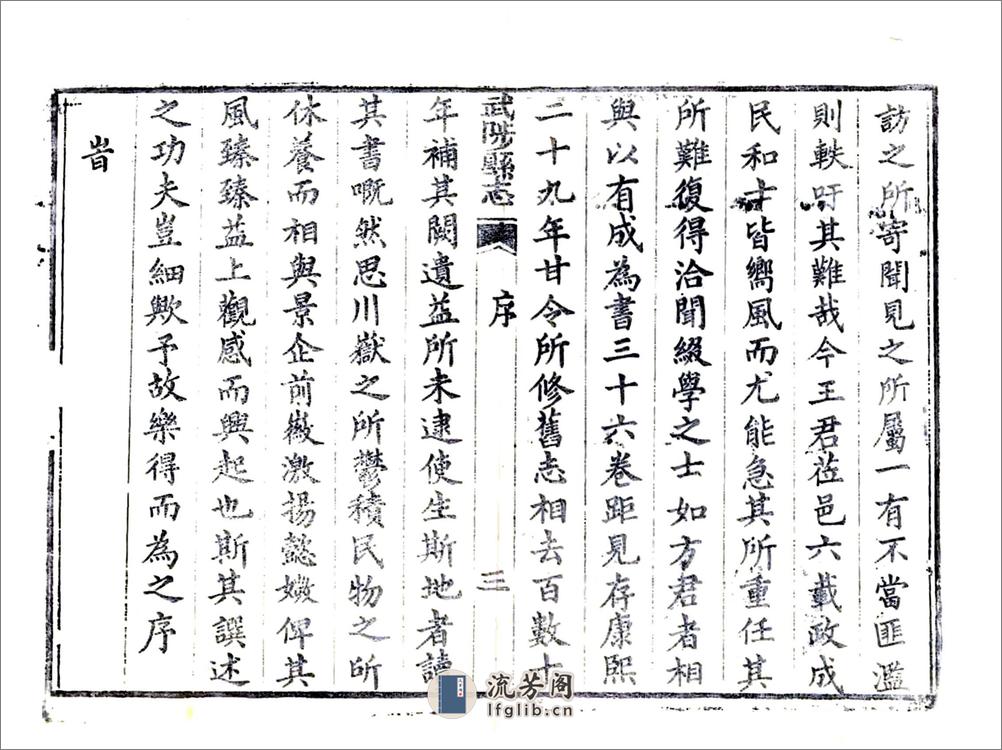 訪之所寄聞見之所屬一有不當匪濫
則軼吁其難哉今王君莅邑六載政成
民和士皆嚮風而尤能急其所重任其
所難復得洽聞綴學之士如方君者相
與以有成為書三十六卷距見存康熙
二十九年甘令所修舊志相去百數十
武陟縣志
序
三
年補其闕遺益所未逮使生斯地者讀
其書嘅然思川嶽之所鬱積民物之所
休養而相與景企前徽激揚懿媺俾其
風臻臻益上觀感而興起也斯其譔述
之功夫豈細歟予故樂得而為之序
旹
流芳阁
lfglib.cn